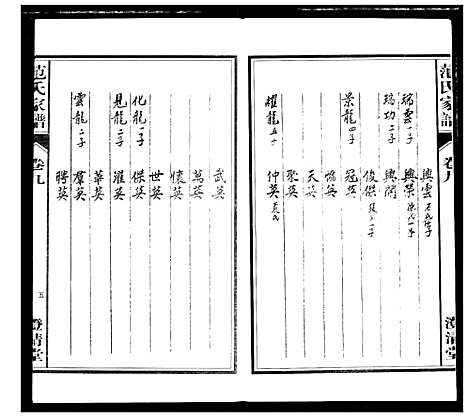 范氏家譜
卷九
澄清堂
興雲
瑞雲一子 興榮
瑞功二子 興閣
俊傑
景龍四子 冠英
天英
耀龍五子 仲英
武英
萬英
懷英
世英
化龍一子 傑英
見龍二子 耀英
華英
雲龍二子 群英
勝英
范氏家譜
卷九
五
澄清堂